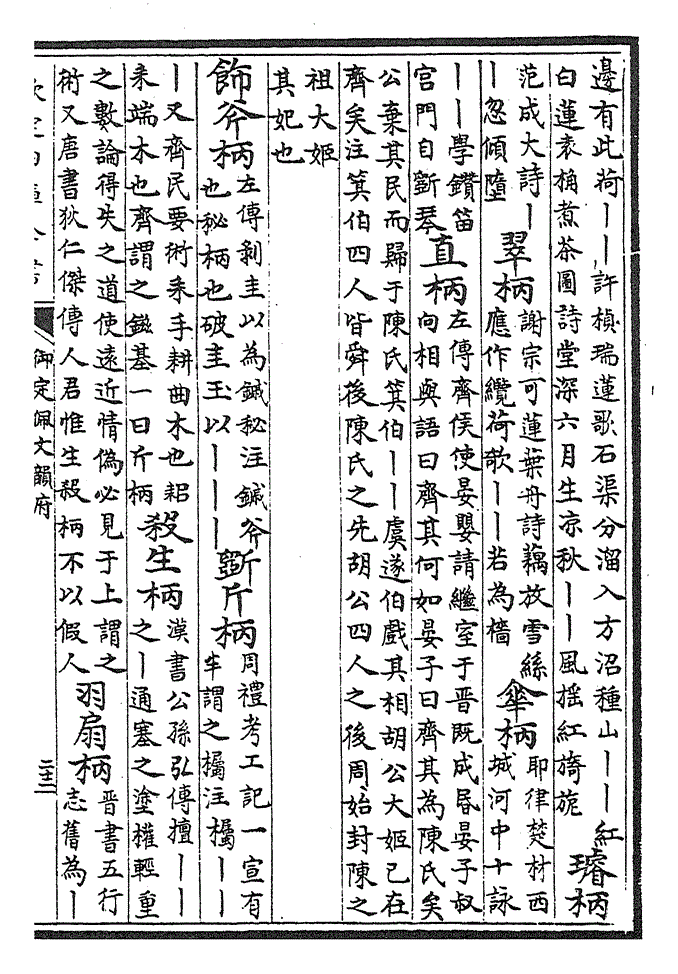 邊有此荷｜｜許楨瑞蓮歌石渠分溜入方沼種山｜｜紅
白蓮袁桷煮茶圖詩堂深六月生凉秋｜｜風摇紅旖旎
璿柄
范成大詩｜
｜忽傾墮
翠柄
謝宗可蓮葉舟詩藕放雪絲
應作纜荷欹｜｜若為檣
傘柄
耶律楚材西
域河中十詠
｜｜學鑽笛
宫門自斵琴
直柄
左傳齊侯使晏嬰請繼室于晉既成昬晏子叔
向相與語曰齊其何如晏子曰齊其為陳氏矣
公棄其民而歸于陳氏箕伯｜｜虞遂伯戲其相胡公大姬已在
齊矣注箕伯四人皆舜後陳氏之先胡公四人之後周始封陳之
祖大姬
其妃也
飾斧柄
左傳剥圭以為鏚柲注鏚斧
也柲柄也破圭玉以｜｜｜
斵斤柄
周禮考工記一宣有
半謂之欘注欘｜｜
｜又齊民要術耒手耕曲木也耜
耒端木也齊謂之鎡基一曰斤柄
殺生柄
漢書公孫弘傳擅｜｜
之｜通塞之塗權輕重
之數論得失之道使遠近情偽必見于上謂之
術又唐書狄仁傑傳人君惟生殺柄不以假人
羽扇柄
晉書五行
志舊為｜
欽定四庫全書
御定佩文韻府